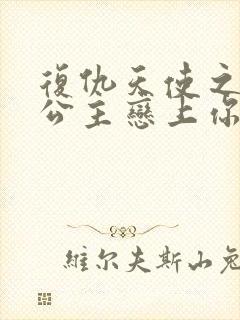 復仇天使之
公主戀上你
維尔夫斯山兔